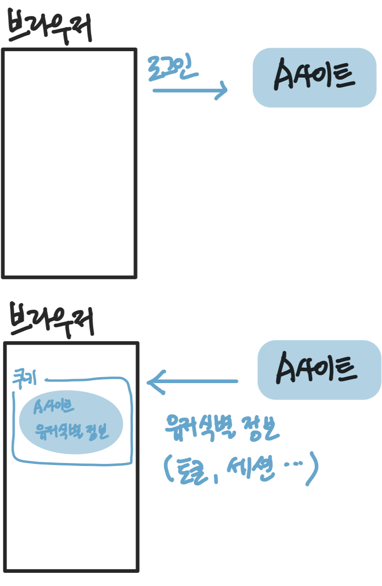 브라우저
로그인
A사이트
브라우저
A사이트
쿠키
A사이트
유저식별 정보
유저식별 정보
(토큰, 세션 ...)